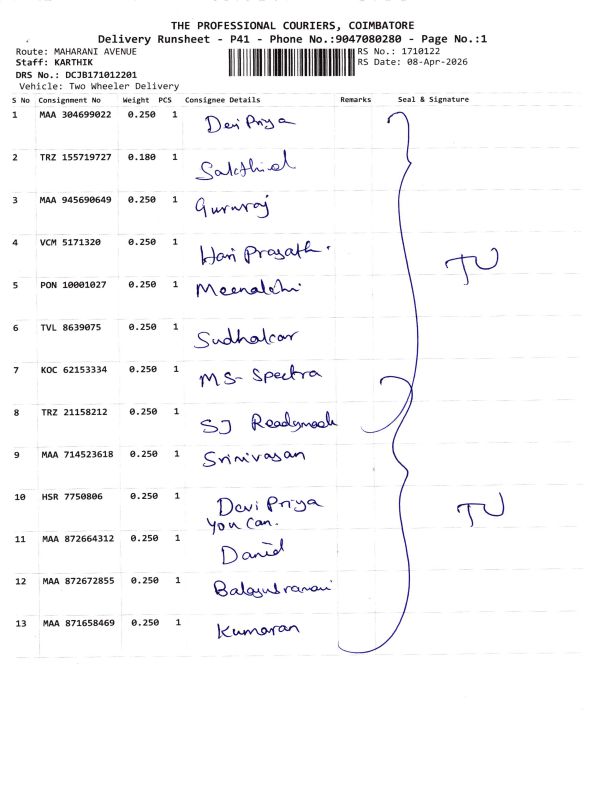 THE PROFESSIONAL COURIERS, COIMBATORE
Delivery Runsheet - P41 - Phone No.:9047080280 - Page No.:1
Route: MAHARANI AVENUE RS No.: 1710122
Staff: KARTHIK RS Date: 08-Apr-2026
DRS No.: DCJB171012201
Vehicle: Two Wheeler Delivery
S No Consignment No Weight PCS Consignee Details Remarks Seal & Signature
1 MAA 304699022 0.250 1 Devi Priya
2 TRZ 155719727 0.180 1 Sakthivel
3 MAA 945690649 0.250 1 Gururaj
4 VCM 5171320 0.250 1 Hari Prasath.
5 PON 10001027 0.250 1 Meenakshi
6 TVL 8639075 0.250 1 Sudhakar
7 KOC 62153334 0.250 1 MS- Spectra
8 TRZ 21158212 0.250 1 SJ
9 MAA 714523618 0.250 1 Srinivasan
10 HSR 7750806 0.250 1 Devi Priya
You Can.
11 MAA 872664312 0.250 1 Daniel
12 MAA 872672855 0.250 1
13 MAA 871658469 0.250 1 Kumaran